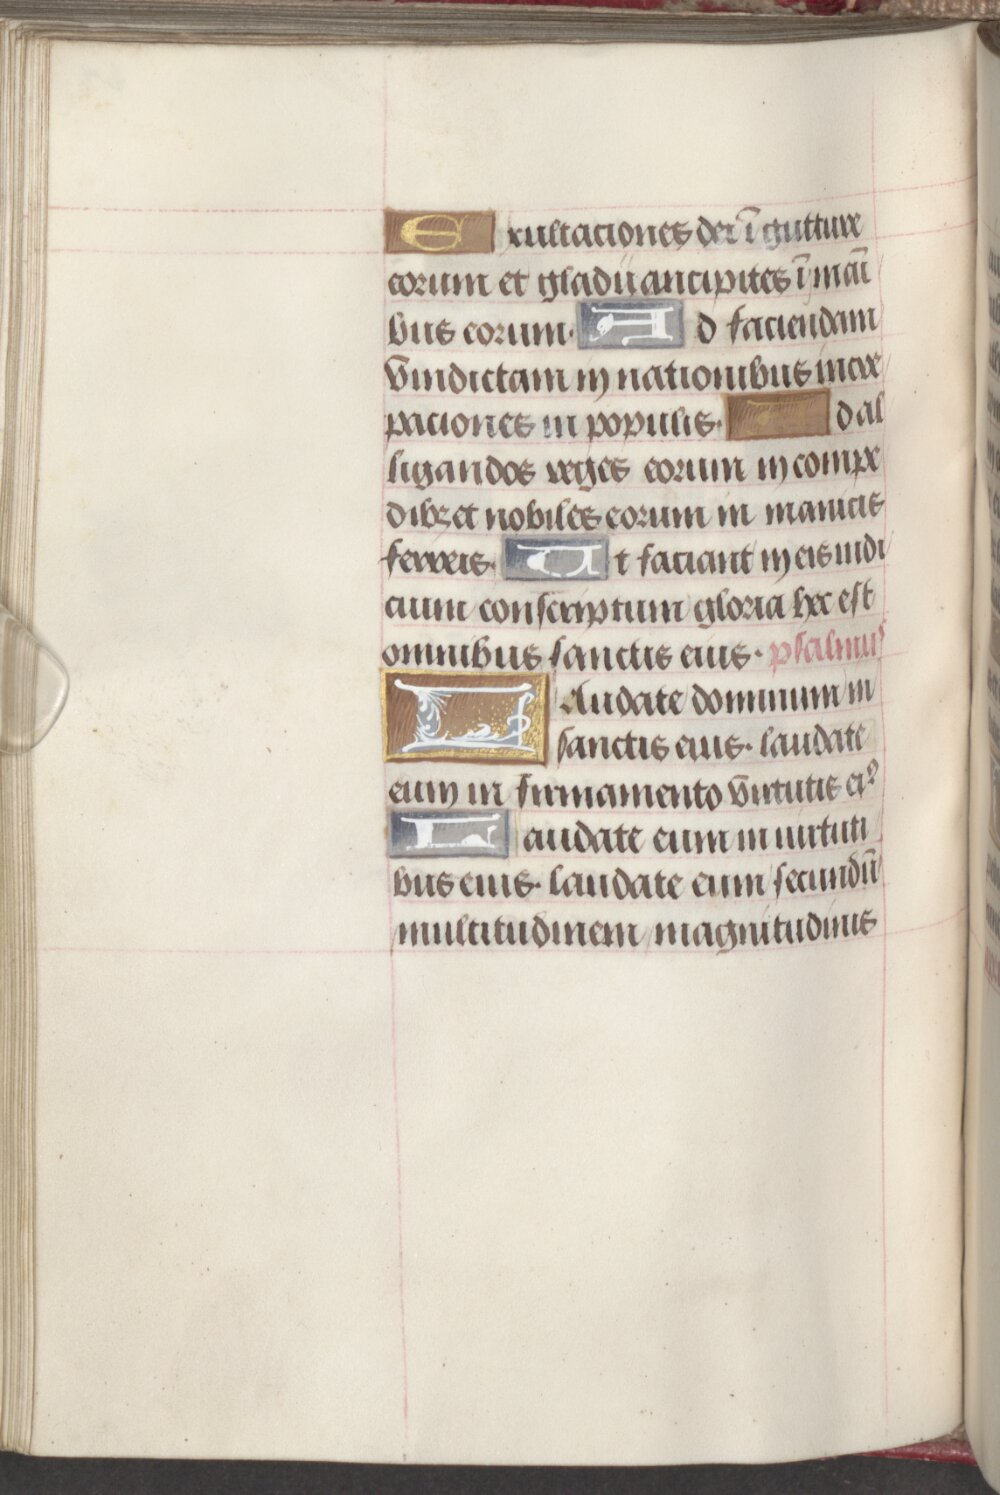 Exultaciones dei ī gutture
eorum et gladii ancipites ī mani
bus eorum. Ad faciendam
vindictam in nationibus incre
paciones in populis. Ad al
ligandos reges eorum in compe
dibz et nobiles eorum in manicis
ferreis. Ut faciant in eis iudi
cium conscriptum gloria hec est
omnibus sanctis eius. psalmus
LAudate dominum in
sanctis eius. laudate
eum in firmamento virtutis ei⁹
Laudate eum in uirtuti
bus eius. laudate eum secundū
multitudinem magnitudinis